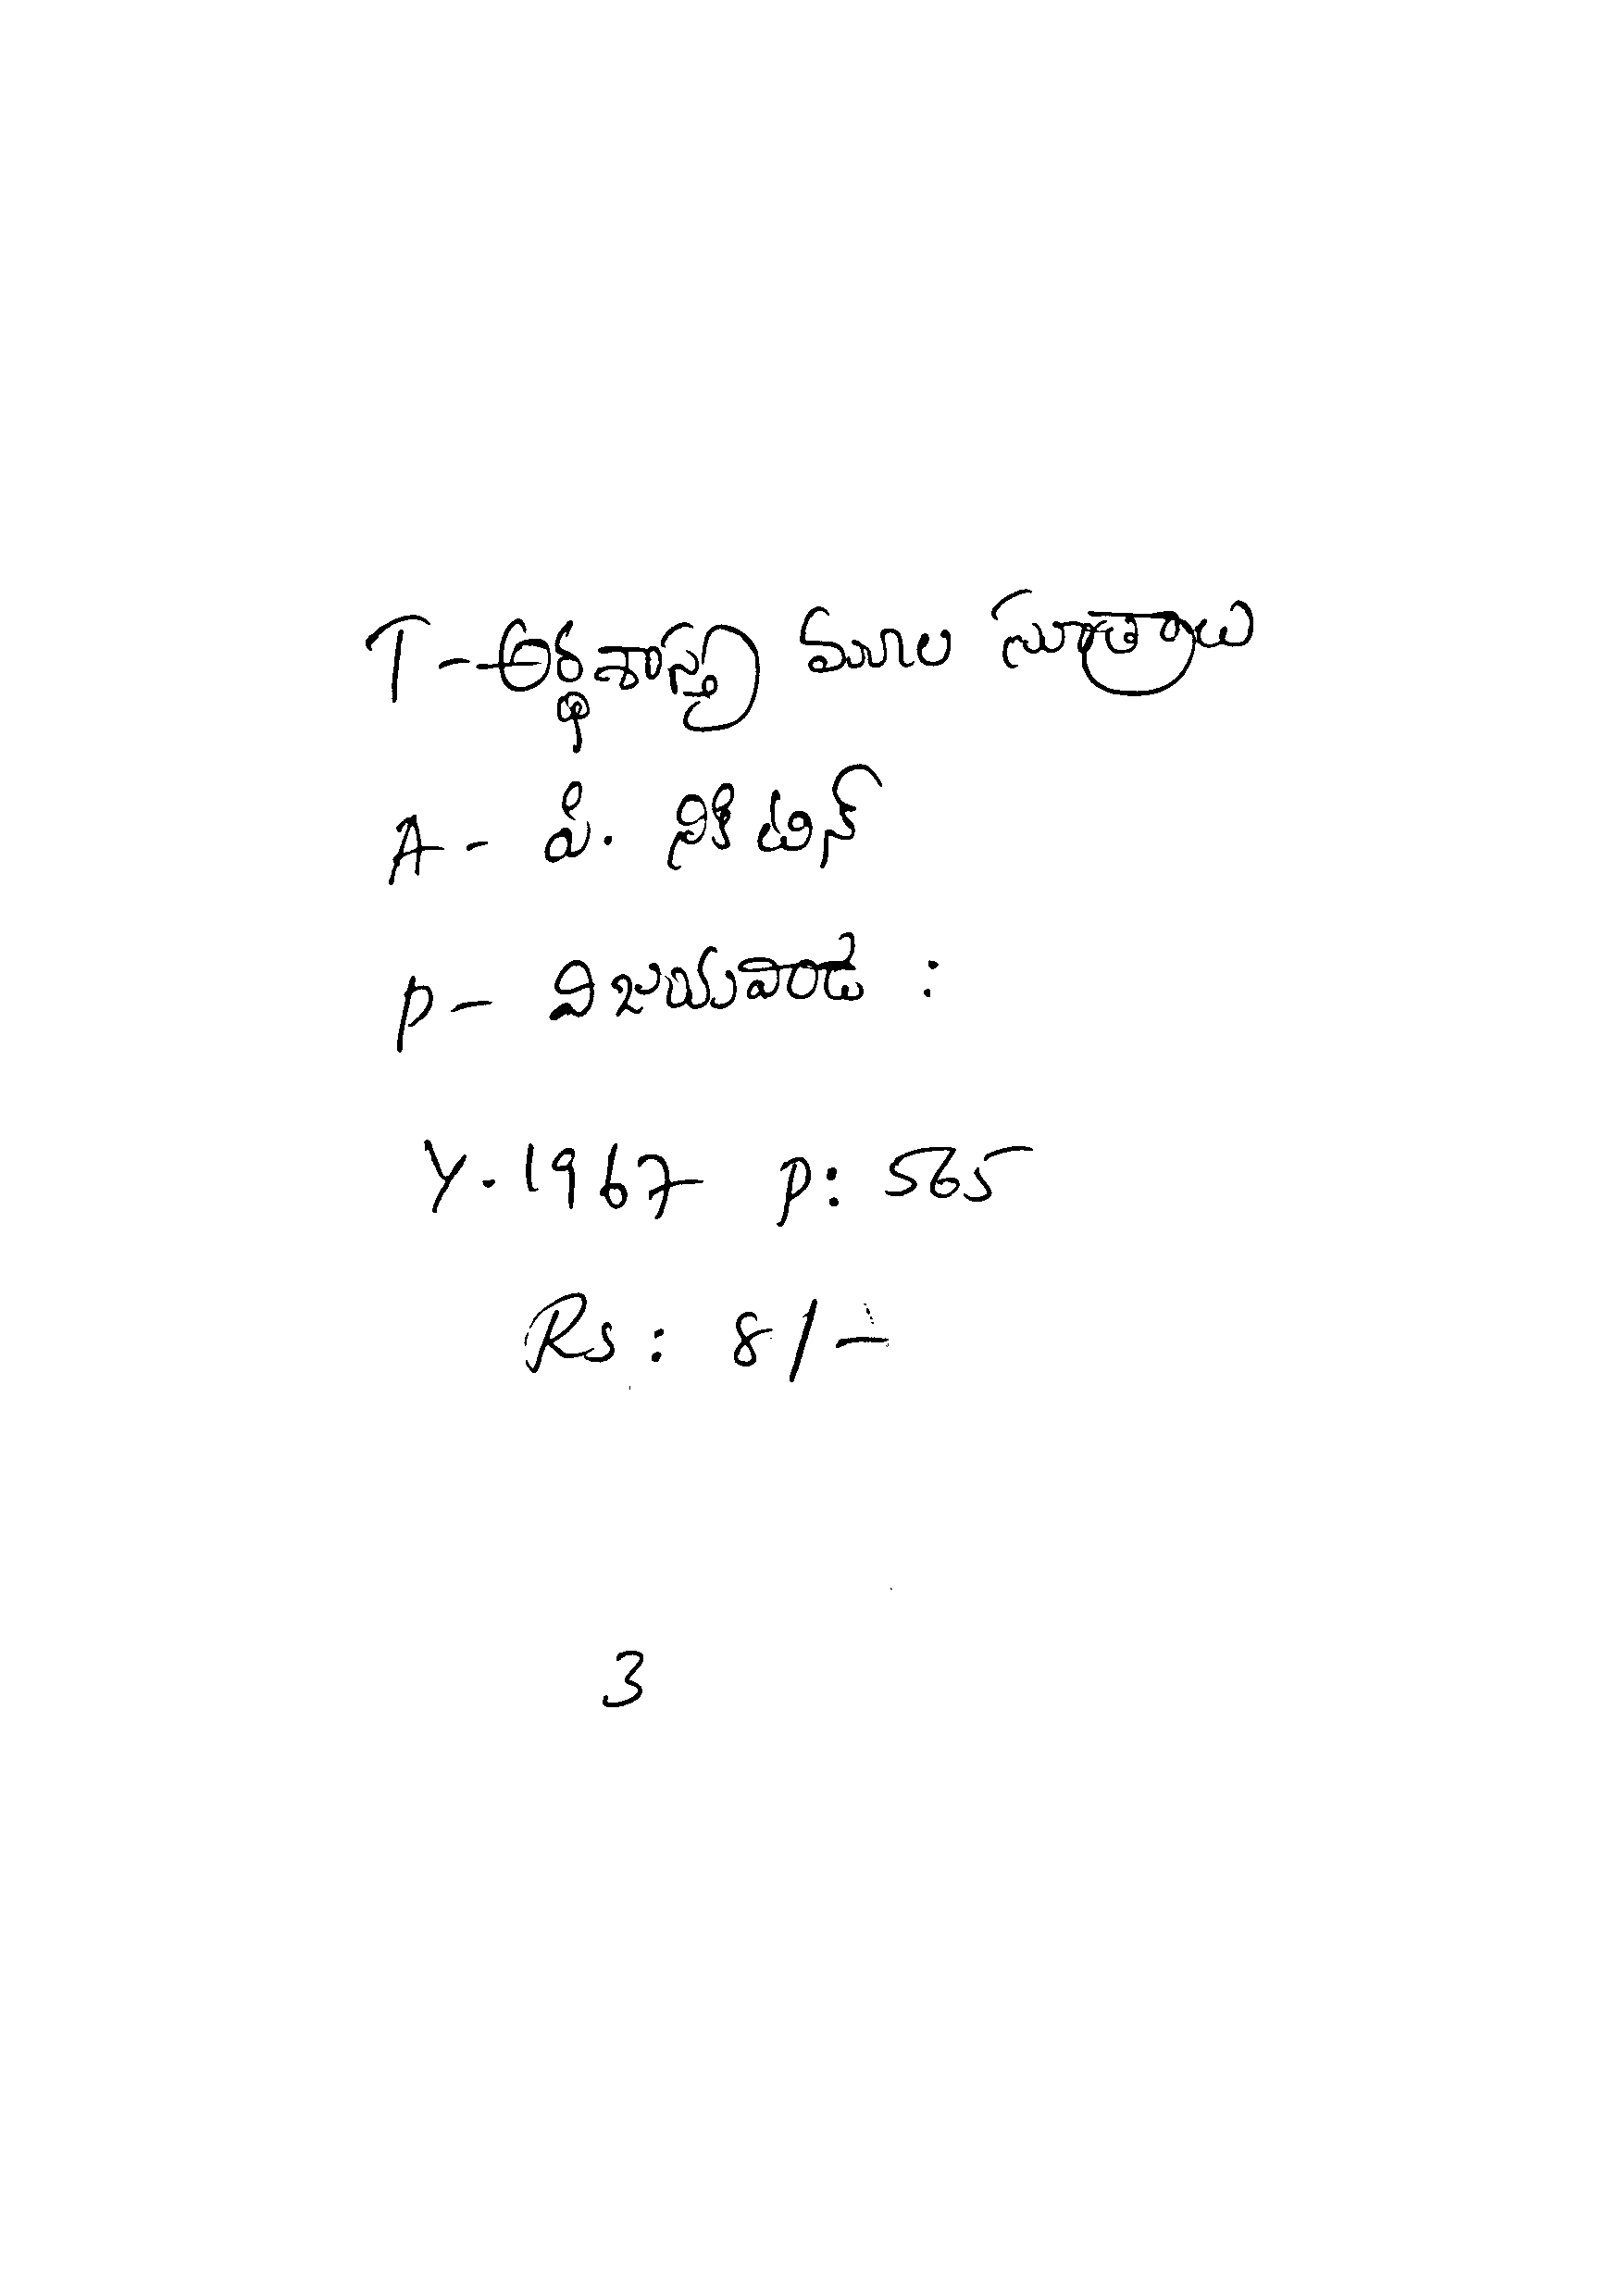 T - అర్థశాస్త్ర మూల సూత్రాలు
A - పి. నికిటిన్
P - విజయవాడ :
Y. 1967 P: 565
Rs: 8/-
3